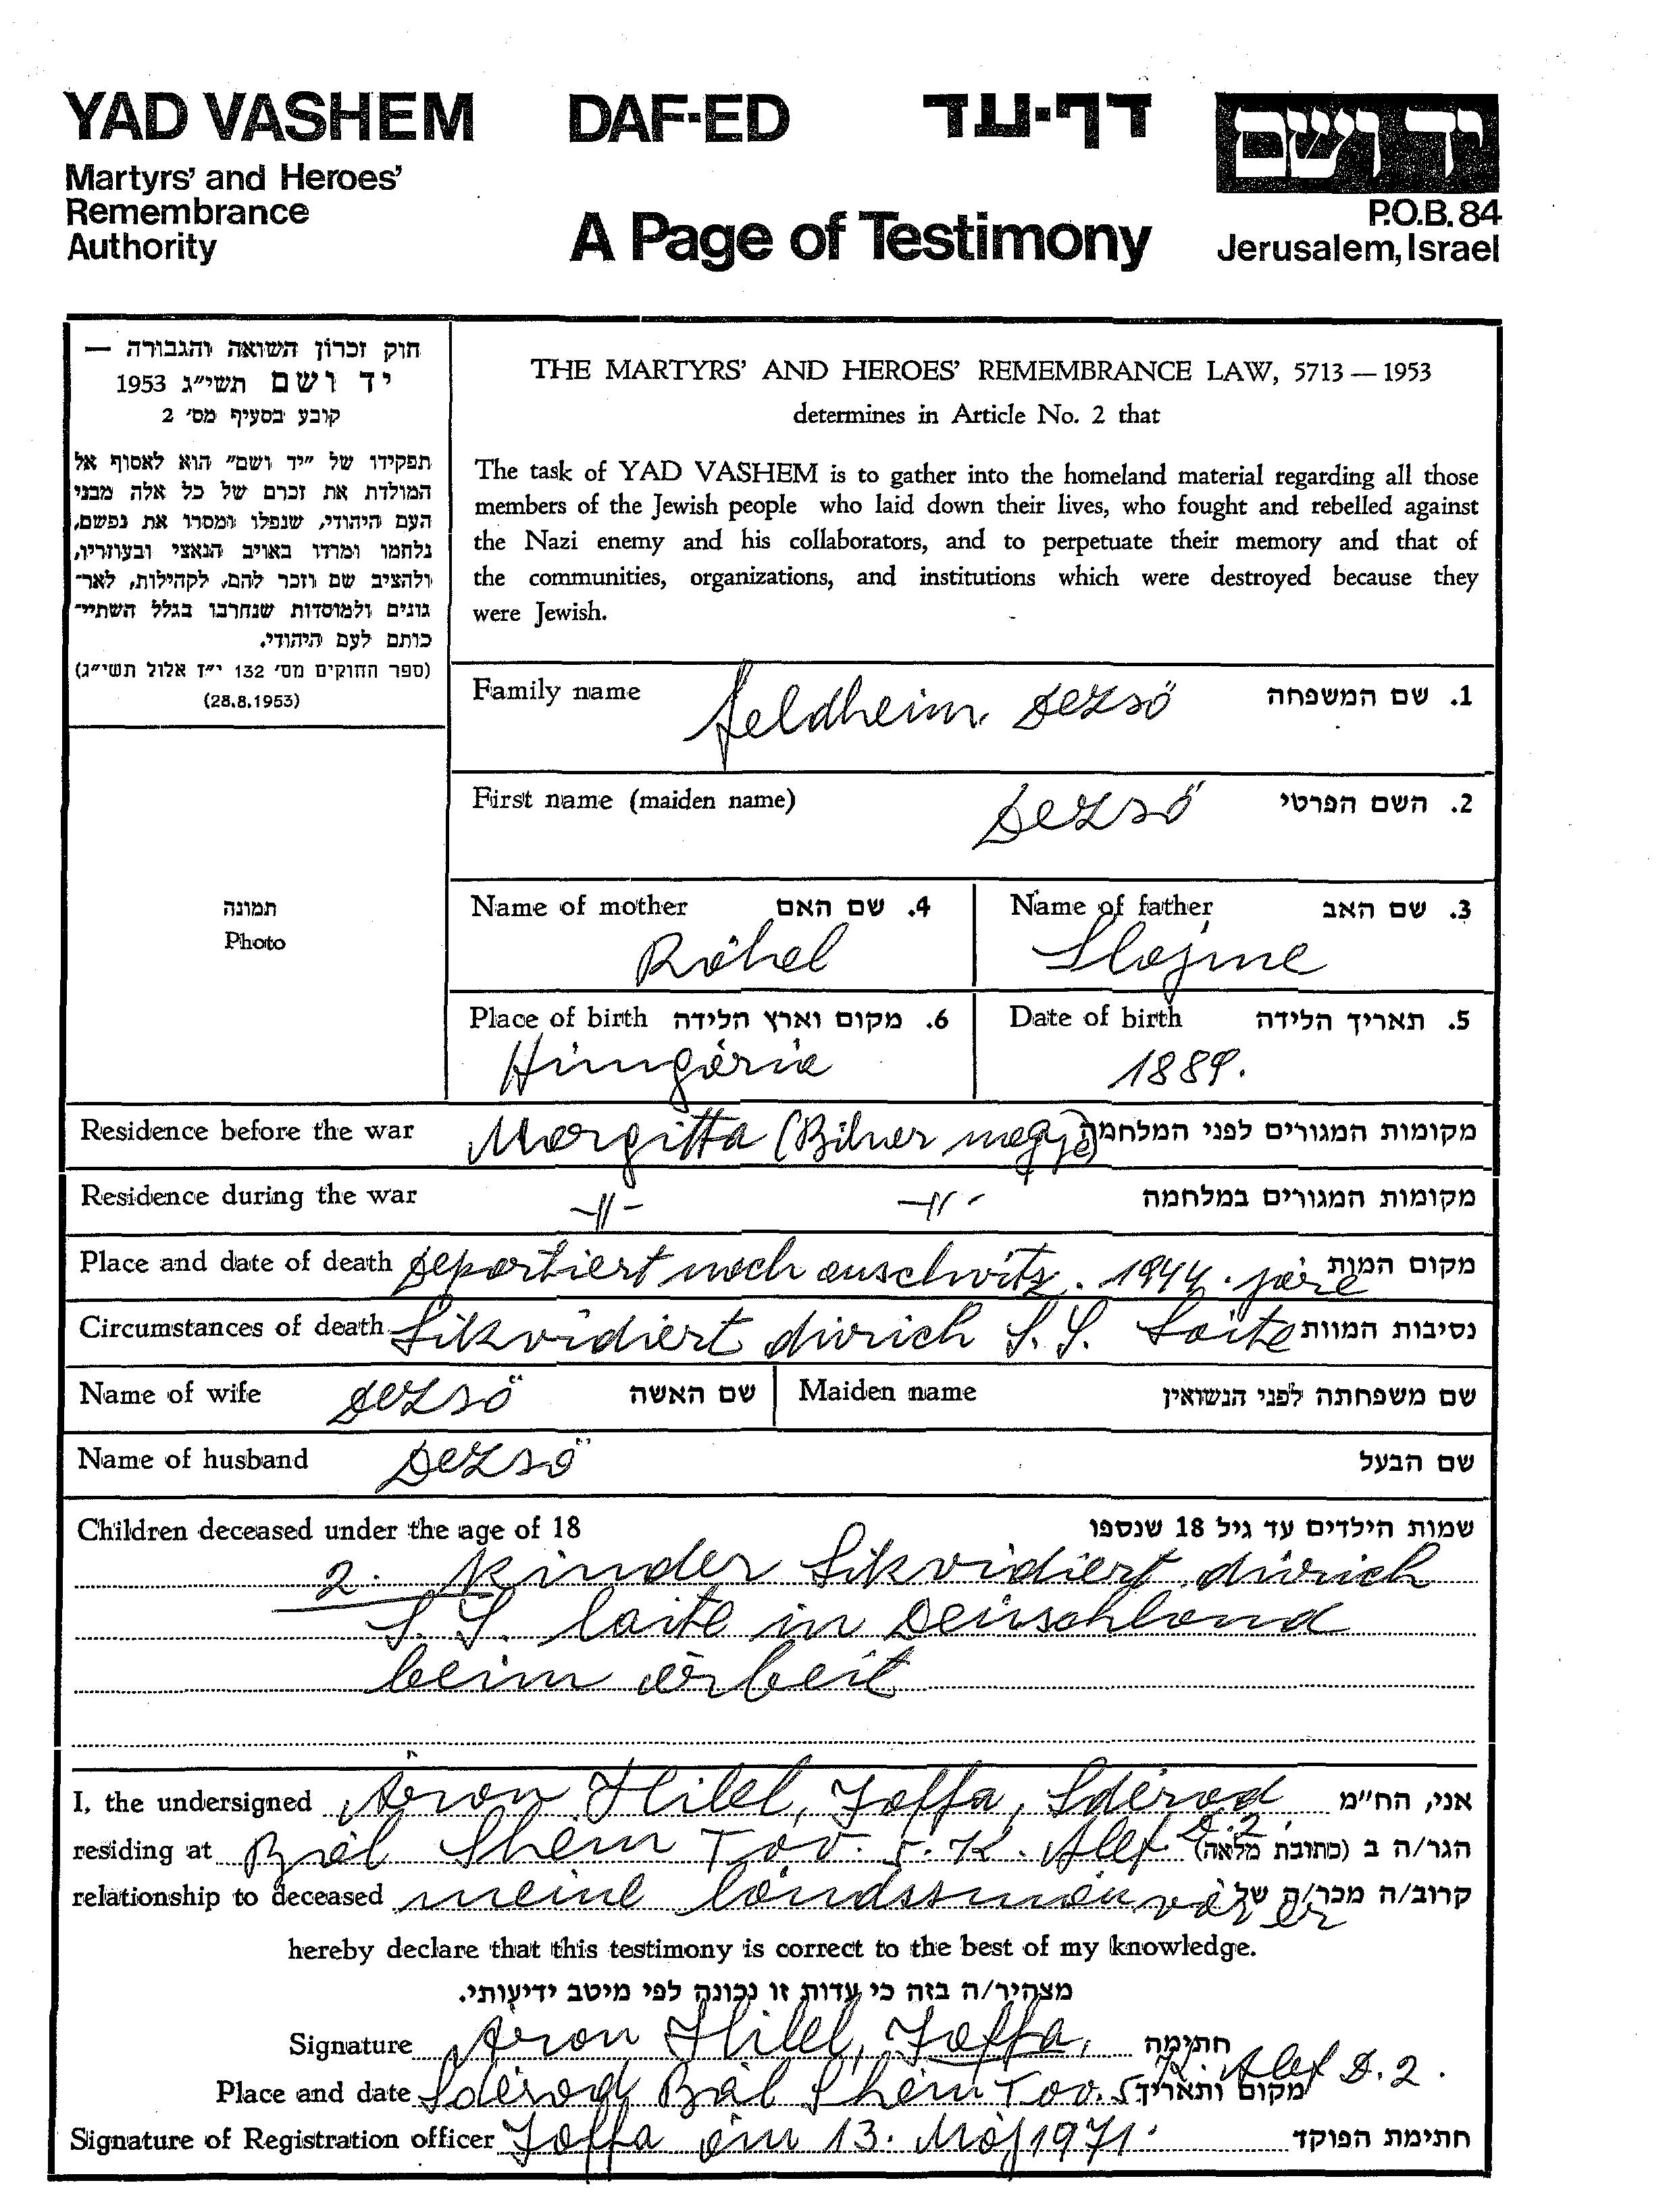 YAD VASHEM DAF-ED דף-עד יד ושם
Martyrs' and Heroes'
Remembrance
Authority
A Page of Testimony
P.O.B. 84
Jerusalem, Israel
חוק זכרון השואה והגבורה —
יד ושם תשי״ג 1953
קובע בסעיף מס׳ 2
תפקידו של ״יד ושם״ הוא לאסוף אל
המולדת את זכרם של כל אלה מבני
העם היהודי, שנפלו ומסרו את נפשם,
נלחמו ומרדו באויב הנאצי ובעוזריו,
ולהציב שם וזכר להם, לקהילות, לאר־
גונים ולמוסדות שנחרבו בגלל השתיי־
כותם לעם היהודי.
(ספר החוקים מס׳ 132 י״ז אלול תשי״ג)
(28.8.1953)
תמונה
Photo
THE MARTYRS' AND HEROES' REMEMBRANCE LAW, 5713 — 1953
determines in Article No. 2 that
The task of YAD VASHEM is to gather into the homeland material regarding all those
members of the Jewish people who laid down their lives, who fought and rebelled against
the Nazi enemy and his collaborators, and to perpetuate their memory and that of
the communities, organizations, and institutions which were destroyed because they
were Jewish.
Family name Feldheim Dezsö 1. שם המשפחה
First name (maiden name) Dezsö 2. השם הפרטי
Name of mother 4. שם האם Name of father 3. שם האב
Ráhel Slojme
Place of birth 6. מקום וארץ הלידה Date of birth 5. תאריך הלידה
Hungária 1889.
Residence before the war Margitta (Bihar megye) מקומות המגורים לפני המלחמה
Residence during the war -"- -"- מקומות המגורים במלחמה
Place and date of death Deportiert nach auschvitz. 1944. jare מקום המות
Circumstances of death Likvidiert durich S.S. Laite נסיבות המוות
Name of wife Dezsö שם האשה Maiden name שם משפחתה לפני הנשואין
Name of husband Dezsö שם הבעל
Children deceased under the age of 18 שמות הילדים עד גיל 18 שנספו
2. Kinder Likvidiert durich
S.S. laite in Deuschland
beim arbeit
I, the undersigned Áron Hilel, Joffa, Sdérod אני, הח״מ
residing at Bál Shem Tov. 5. K. Alef D.2. הגר/ה ב (כתובת מלאה)
relationship to deceased meine landssman vár er קרוב/ה מכר/ה של
hereby declare that this testimony is correct to the best of my knowledge.
מצהיר/ה בזה כי עדות זו נכונה לפי מיטב ידיעותי.
Signature Áron Hilel, Joffa, חתימה
Place and date Sdérod Bál Shem Tov. 5. K. Alef D.2. מקום ותאריך
Signature of Registration officer Joffa am 13. Máj 1971. חתימת הפוקד